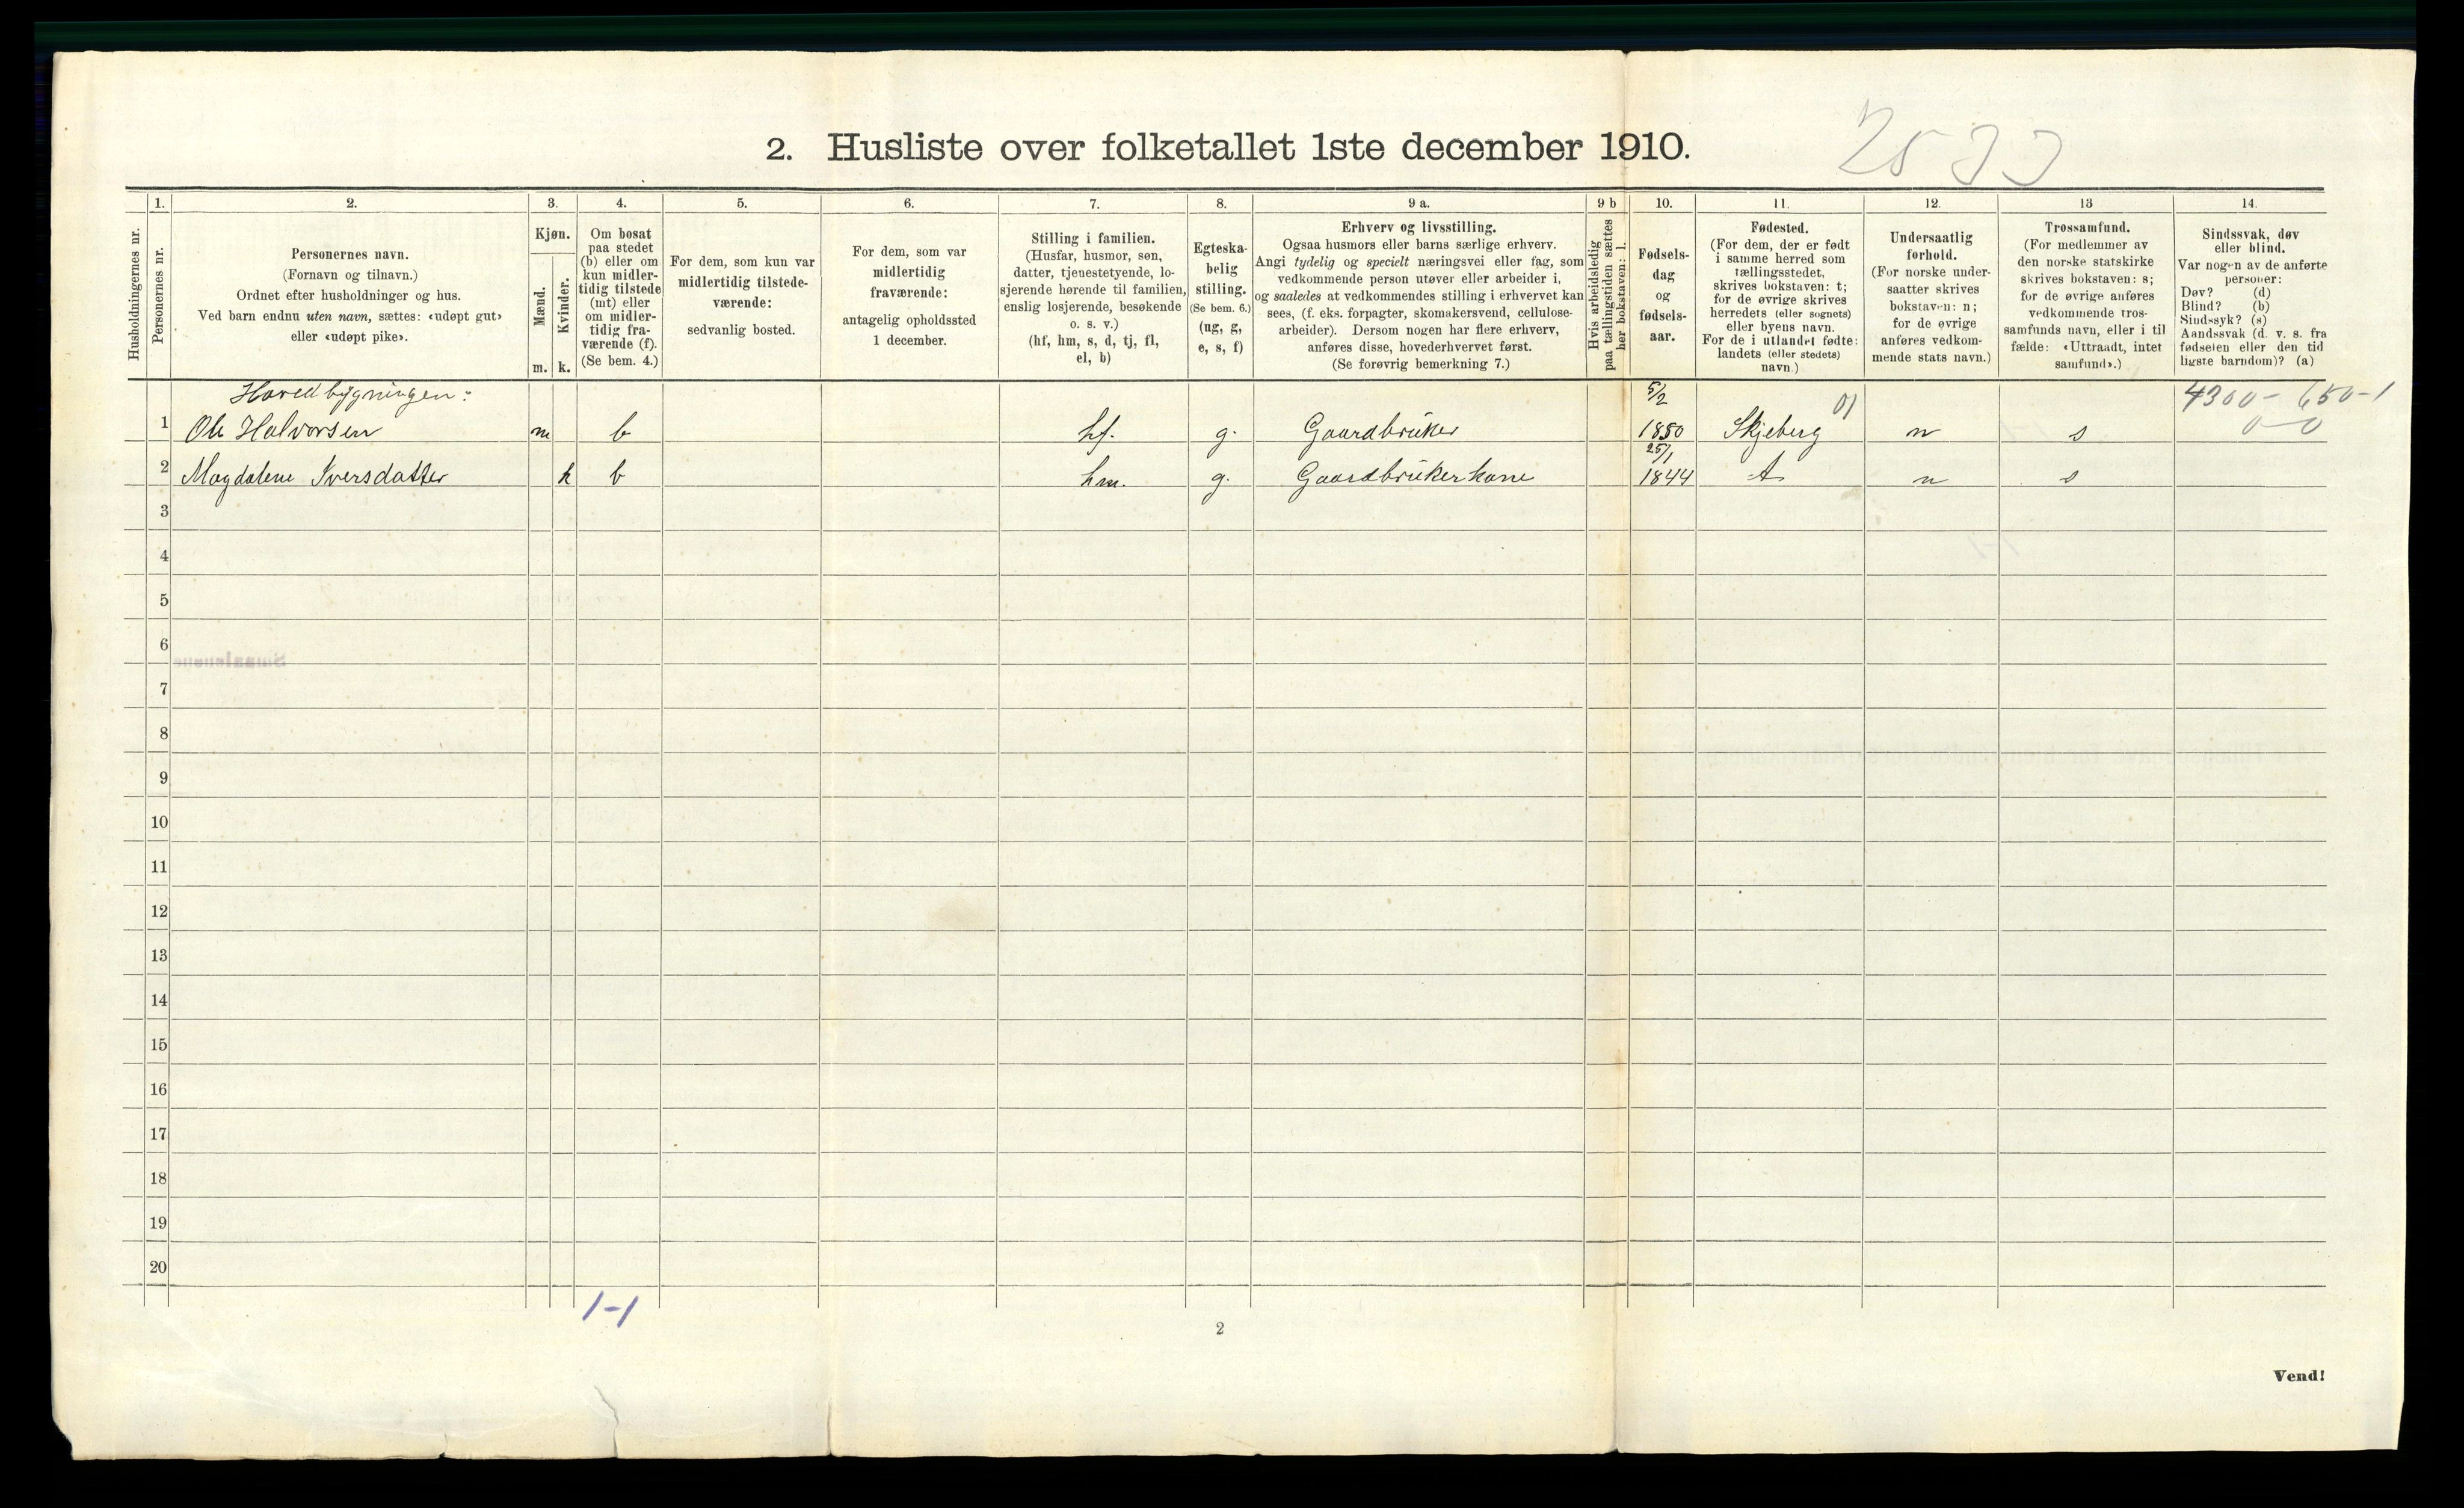 2. Husliste over folketallet 1ste december 1910.
2533
Husholdningernes nr.
1.
Personernes nr.
2.
Personernes navn.
(Fornavn og tilnavn.)
Ordnet efter husholdninger og hus.
Ved barn endnu uten navn, sættes: «udøpt gut»
eller «udøpt pike».
3.
Kjøn.
Mænd.
Kvinder.
m. k.
4.
Om bosat
paa stedet
(b) eller om
kun midler-
tidig tilstede
(mt) eller
om midler-
tidig fra-
værende (f).
(Se bem. 4.)
5.
For dem, som kun var
midlertidig tilstede-
værende:
sedvanlig bosted.
6.
For dem, som var
midlertidig
fraværende:
antagelig opholdssted
1 december.
7.
Stilling i familien.
(Husfar, husmor, søn,
datter, tjenestetyende, lo-
sjerende hørende til familien,
enslig losjerende, besøkende
o. s. v.)
(hf, hm, s, d, tj, fl,
el, b)
8.
Egteska-
belig
stilling.
(Se bem. 6.)
(ug, g,
e, s, f)
9 a.
Erhverv og livsstilling.
Ogsaa husmors eller barns særlige erhverv.
Angi tydelig og specielt næringsvei eller fag, som
vedkommende person utøver eller arbeider i,
og saaledes at vedkommendes stilling i erhvervet kan
sees, (f. eks. forpagter, skomakersvend, cellulose-
arbeider). Dersom nogen har flere erhverv,
anføres disse, hovederhvervet først.
(Se forøvrig bemerkning 7.)
9 b
Hvis arbeidsledig
paa tællingstiden sættes
her bokstaven: l.
10.
Fødsels-
dag
og
fødsels-
aar.
11.
Fødested.
(For dem, der er født
i samme herred som
tællingsstedet,
skrives bokstaven: t;
for de øvrige skrives
herredets (eller sognets)
eller byens navn.
For de i utlandet fødte:
landets (eller stedets)
navn.)
12.
Undersaatlig
forhold.
(For norske under-
saatter skrives
bokstaven: n;
for de øvrige
anføres vedkom-
mende stats navn.)
13
Trossamfund.
(For medlemmer av
den norske statskirke
skrives bokstaven: s;
for de øvrige anføres
vedkommende tros-
samfunds navn, eller i til
fælde: «Uttraadt, intet
samfund».)
14.
Sindssvak, døv
eller blind.
Var nogen av de anførte
personer:
Døv? (d)
Blind? (b)
Sindssyk? (s)
Aandssvak (d. v. s. fra
fødselen eller den tid
ligste barndom)? (a)
Hovedbygningen: 5/2 01 4300 - 650-1
1 Ole Halvorsen m b hf. g. Gaardbruker 1850 Skjeberg n s 0-0
25/1
2 Magdalene Iversdatter k b hm. g. Gaardbrukerkone 1844 t n s
3
4
5
6
7
8
9
10
11
12
13
14
15
16
17
18
19
20
1-1
2
Vend!